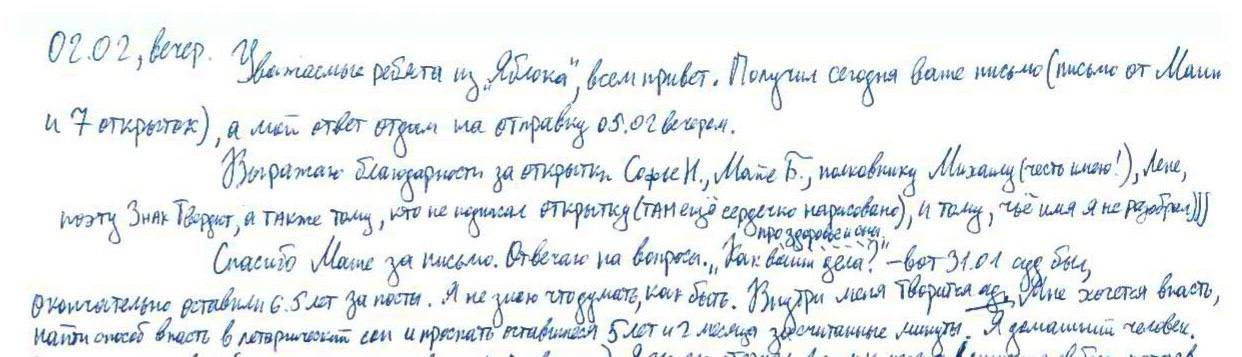 02.02, вечер. Уважаемые ребята из „Яблока“, всем привет. Получил сегодня ваше письмо (письмо от Маши
и 7 открыток), а мой ответ отдам на отправку 05.02 вечером.
Выражаю благодарности за открытки Софье Н., Маше Б., полковнику Михаилу (честь имею!), Лене,
поэту Знак Твердит, а также тому, кто не подписал открытку (там ещё сердечко нарисовано), и тому, чьё имя я не разобрал)))
про здоровье и сны
Спасибо Маше за письмо. Отвечаю на вопросы. „Как ваши дела?“ – вот 31.01 суд был,
окончательно оставили 6.5 лет за посты. Я не знаю что думать, как быть. Внутри меня творится ад. Мне хочется впасть,
найти способ впасть в летаргический сон и проспать оставшиеся 5 лет и 2 месяца за считанные минуты. Я домашний человек.